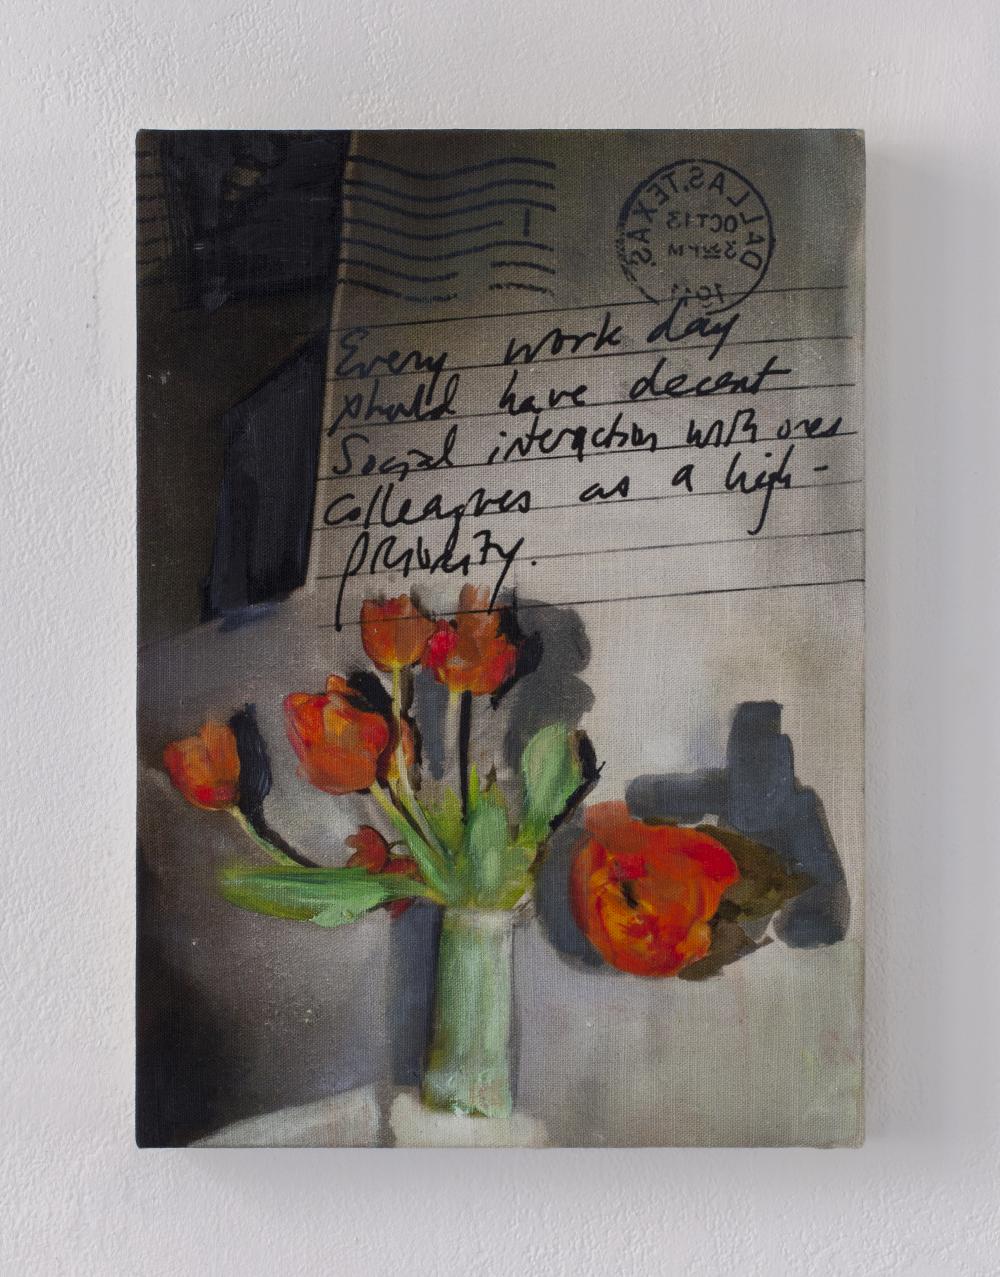 DALLAS, TEXAS.
OCT 13
3 30 PM
1911
Every work day
should have decent
Social interaction with ones
colleagues as a high-
priority.